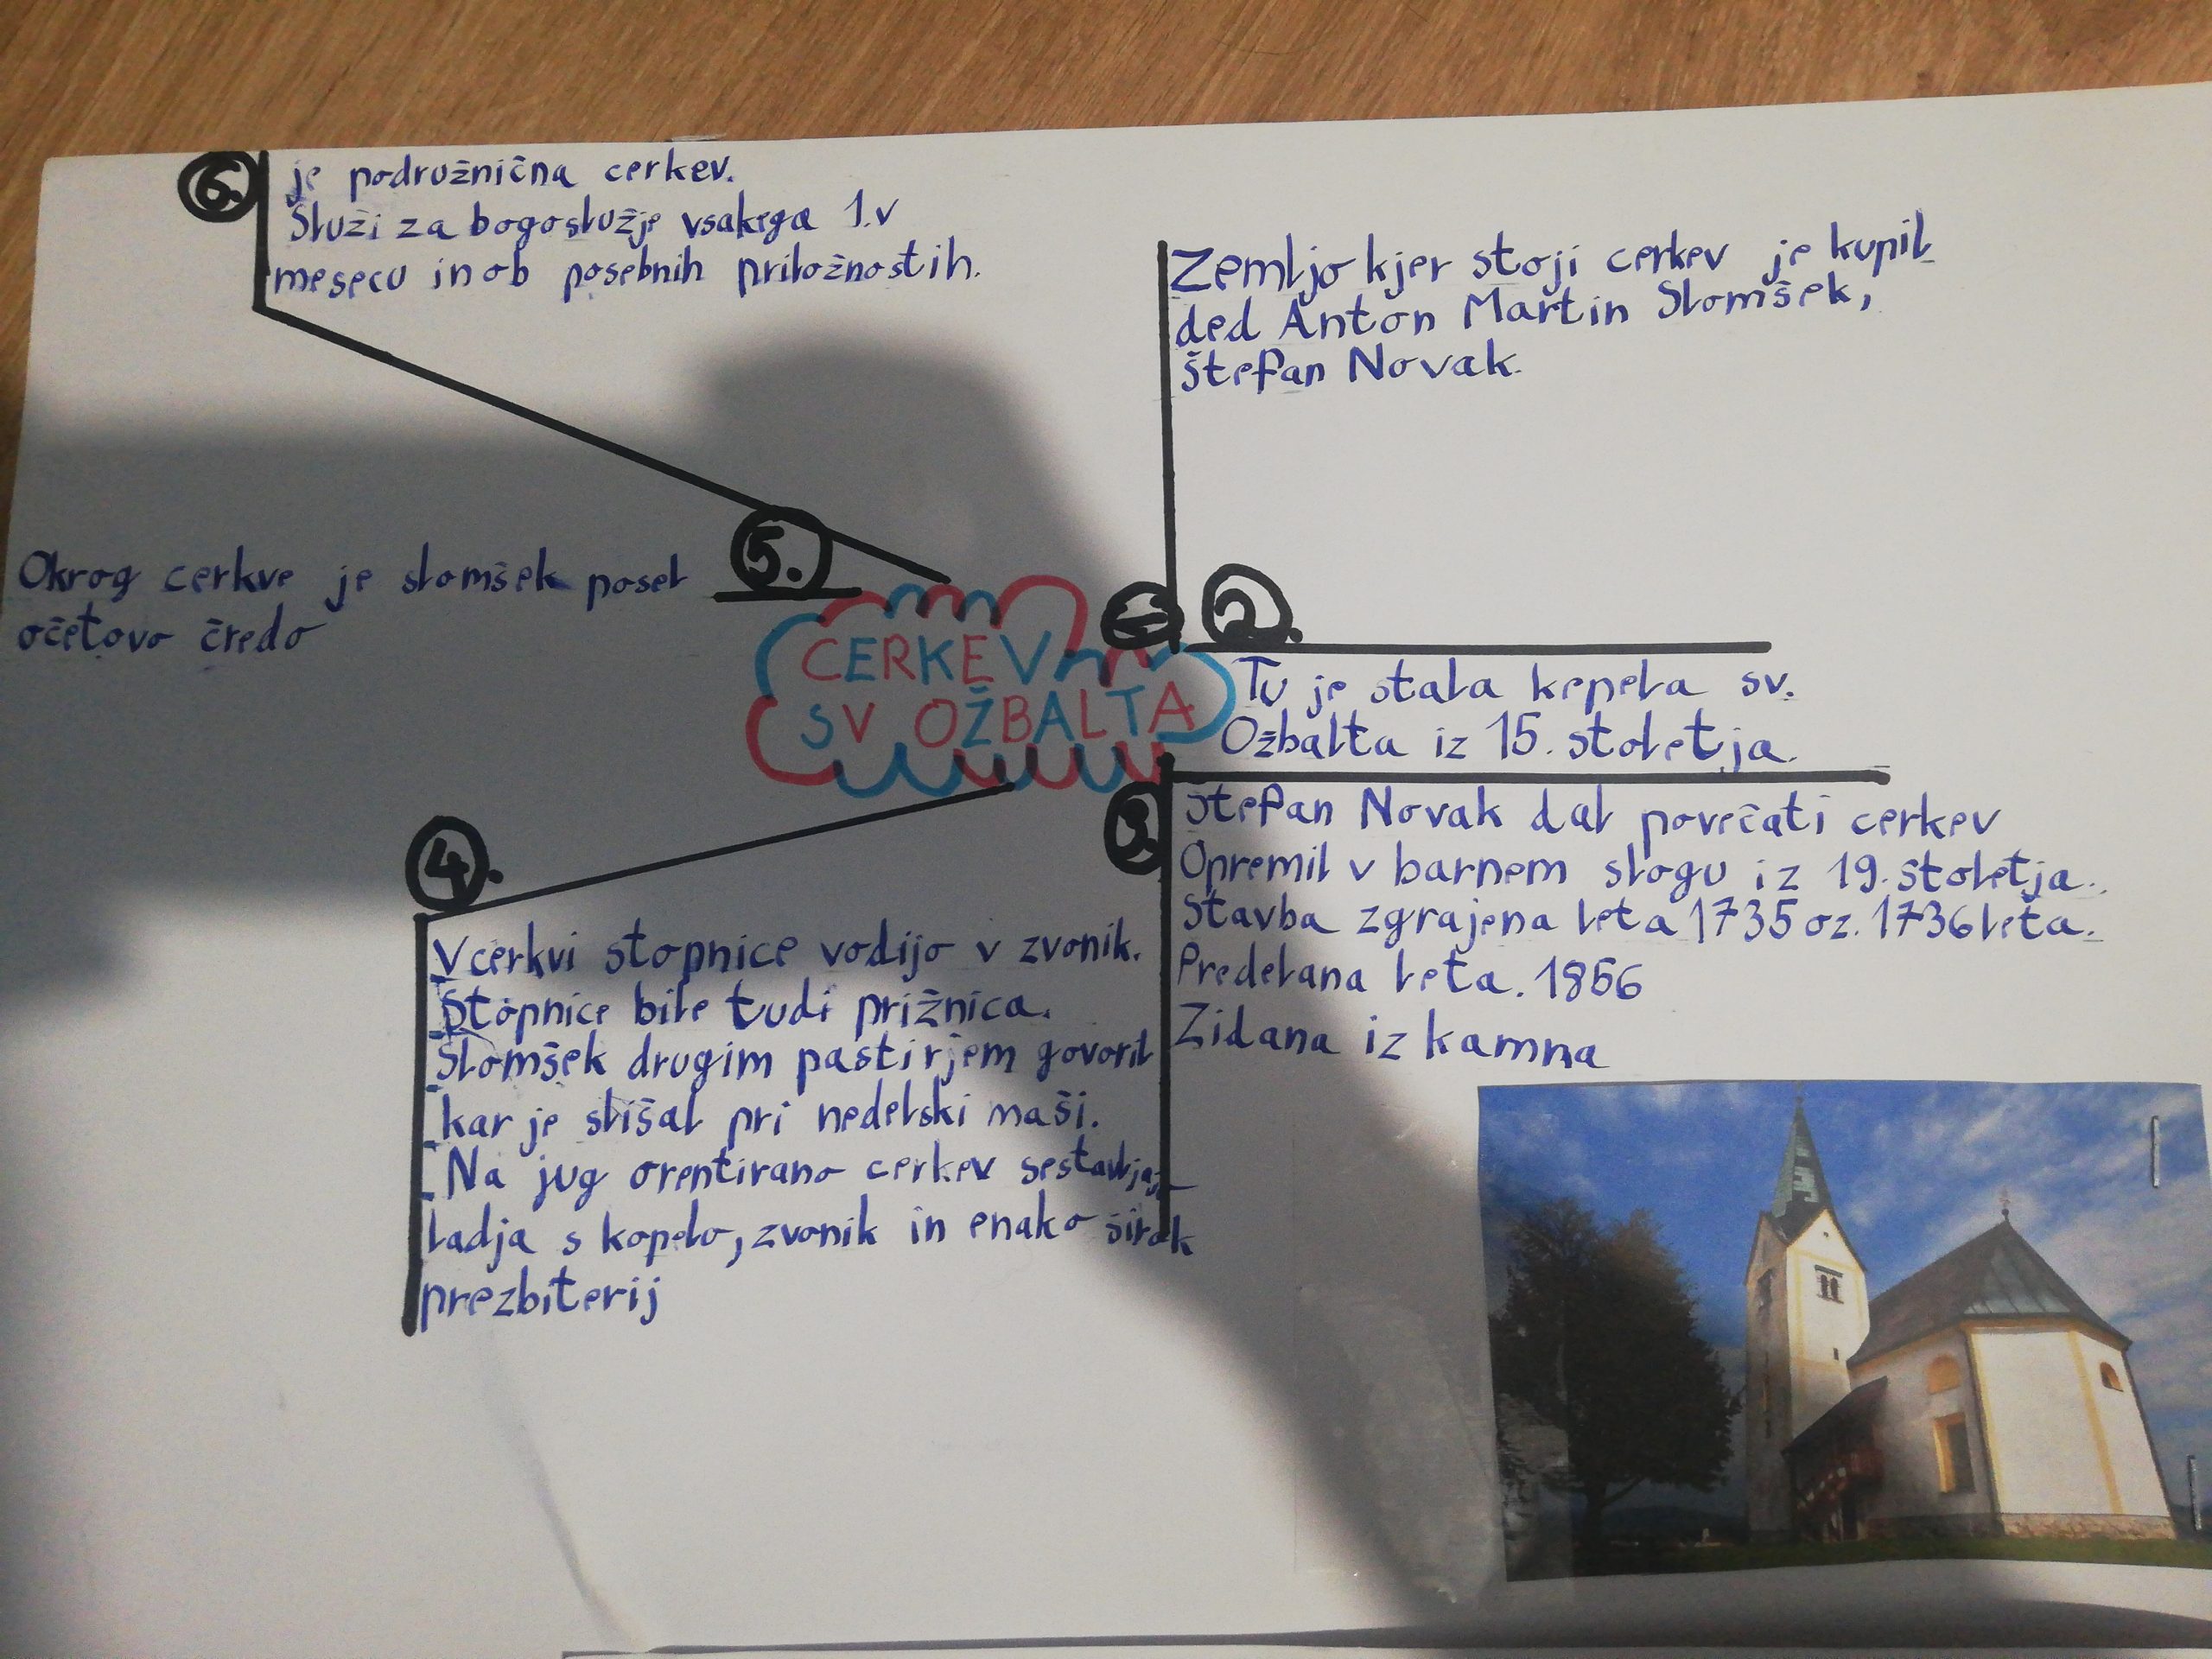 CERKEV
SV OŽBALTA
Zemljo kjer stoji cerkev je kupil
ded Anton Martin Slomšek,
Štefan Novak.
2.
Tu je stala kepela sv.
Ožbalta iz 15. stoletja.
3.
Štefan Novak dal povečati cerkev
Opremil v barnem slogu iz 19. stoletja.
Stavba zgrajena leta 1735 oz. 1736 leta.
Predelana leta. 1856
Zidana iz kamna
4.
V cerkvi stopnice vodijo v zvonik.
Stopnice bile tudi prižnica.
Slomšek drugim pastirjem govoril
kar je slišal pri nedelski maši.
Na jug orentirano cerkev
ladja s kopelo, zvonik in enako širok
prezbiterij
5.
Okrog cerkve je slomšek posel
očetovo čredo
6.
je podružnična cerkev.
Služi za bogoslužje vsakega 1. v
mesecu in ob posebnih priložnostih.